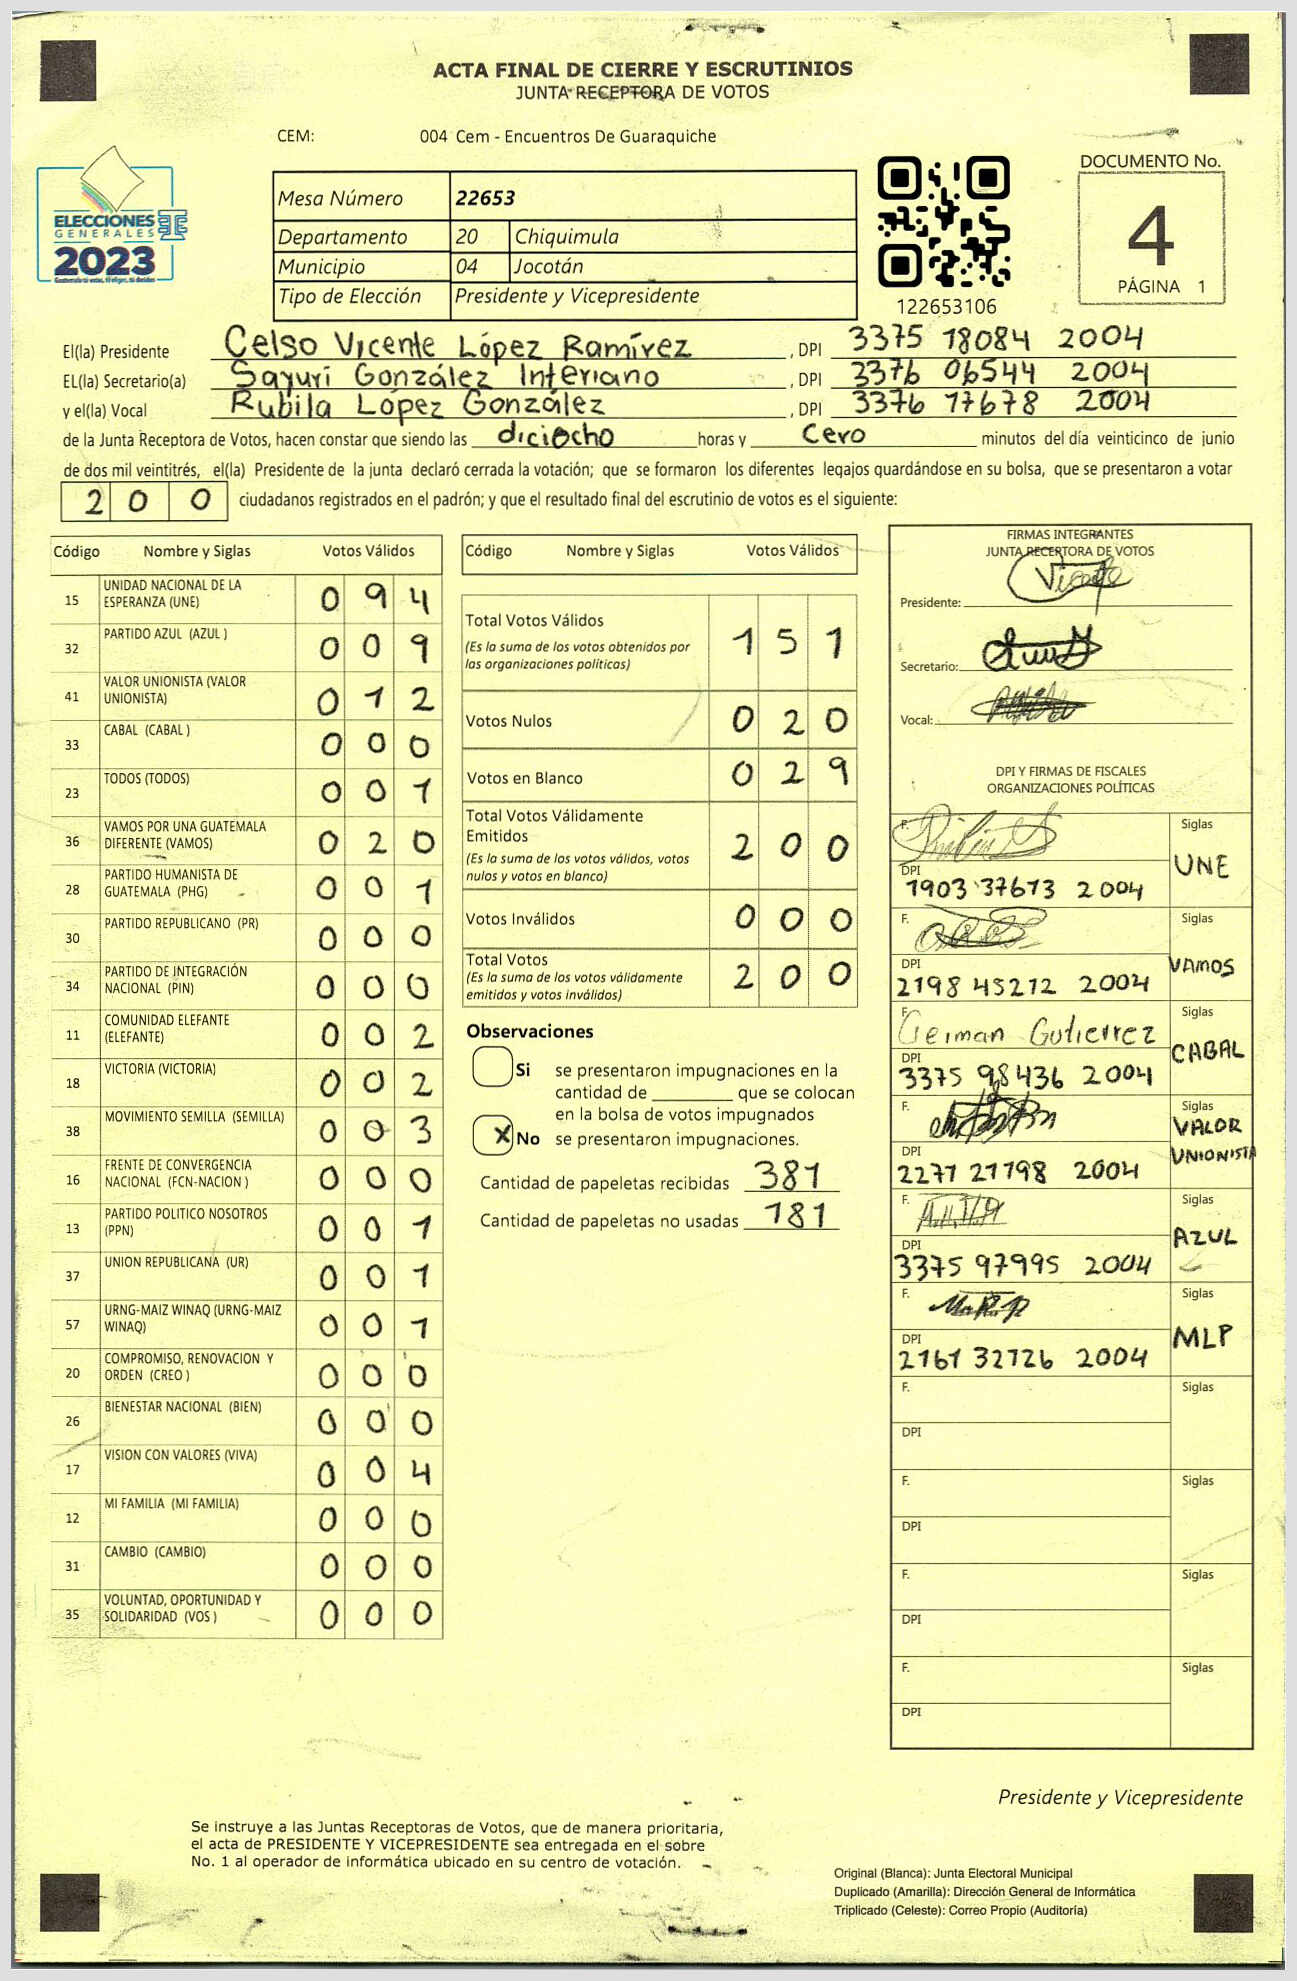 ACTA FINAL DE CIERRE Y ESCRUTINIOS
JUNTA RECEPTORA DE VOTOS
CEM: 004 Cem - Encuentros De Guaraquiche
ELECCIONES
GENERALES
2023
Mesa Número 22653
Departamento 20 Chiquimula
Municipio 04 Jocotán
Tipo de Elección Presidente y Vicepresidente
122653106
DOCUMENTO No.
4
PÁGINA 1
El(la) Presidente Celso Vicente López Ramírez , DPI 3375 18084 2004
EL(la) Secretario(a) Sayuri González Interiano , DPI 3376 06544 2004
y el(la) Vocal Rubila López González , DPI 3376 17678 2004
de la Junta Receptora de Votos, hacen constar que siendo las diciocho horas y cero minutos del día veinticinco de junio
de dos mil veintitrés, el(la) Presidente de la junta declaró cerrada la votación; que se formaron los diferentes legajos quardándose en su bolsa, que se presentaron a votar
200 ciudadanos registrados en el padrón; y que el resultado final del escrutinio de votos es el siguiente:
Código Nombre y Siglas Votos Válidos
15 UNIDAD NACIONAL DE LA
ESPERANZA (UNE) 094
32 PARTIDO AZUL (AZUL ) 009
41 VALOR UNIONISTA (VALOR
UNIONISTA) 012
33 CABAL (CABAL ) 000
23 TODOS (TODOS) 001
36 VAMOS POR UNA GUATEMALA
DIFERENTE (VAMOS) 020
28 PARTIDO HUMANISTA DE
GUATEMALA (PHG) 001
30 PARTIDO REPUBLICANO (PR) 000
34 PARTIDO DE INTEGRACIÓN
NACIONAL (PIN) 000
11 COMUNIDAD ELEFANTE
(ELEFANTE) 002
18 VICTORIA (VICTORIA) 002
38 MOVIMIENTO SEMILLA (SEMILLA) 003
16 FRENTE DE CONVERGENCIA
NACIONAL (FCN-NACION ) 000
13 PARTIDO POLITICO NOSOTROS
(PPN) 001
37 UNION REPUBLICANA (UR) 001
57 URNG-MAIZ WINAQ (URNG-MAIZ
WINAQ) 001
20 COMPROMISO, RENOVACION Y
ORDEN (CREO ) 000
26 BIENESTAR NACIONAL (BIEN) 000
17 VISION CON VALORES (VIVA) 004
12 MI FAMILIA (MI FAMILIA) 000
31 CAMBIO (CAMBIO) 000
35 VOLUNTAD, OPORTUNIDAD Y
SOLIDARIDAD (VOS ) 000
Código Nombre y Siglas Votos Válidos
Total Votos Válidos 151
(Es la suma de los votos obtenidos por
las organizaciones políticas)
Votos Nulos 020
Votos en Blanco 029
Total Votos Válidamente
Emitidos 200
(Es la suma de los votos válidos, votos
nulos y votos en blanco)
Votos Inválidos 000
Total Votos 200
(Es la suma de los votos válidamente
emitidos y votos inválidos)
Observaciones
Si se presentaron impugnaciones en la
cantidad de que se colocan
en la bolsa de votos impugnados
X No se presentaron impugnaciones.
Cantidad de papeletas recibidas 381
Cantidad de papeletas no usadas 181
FIRMAS INTEGRANTES
JUNTA RECEPTORA DE VOTOS
Presidente: Vicente
Secretario:
Vocal:
DPI Y FIRMAS DE FISCALES
ORGANIZACIONES POLÍTICAS
F. Siglas
UNE
DPI
1903 37613 2004
F. Siglas
VAMOS
DPI
2198 45212 2004
F. Siglas
German Gutierrez
CABAL
DPI
3375 98436 2004
F. Siglas
VALOR
UNIONISTA
DPI
2271 21798 2004
F. Siglas
AZUL
DPI
3375 97995 2004
F. Siglas
MLP
DPI
2161 32726 2004
F. Siglas
DPI
F. Siglas
DPI
F. Siglas
DPI
F. Siglas
DPI
Presidente y Vicepresidente
Se instruye a las Juntas Receptoras de Votos, que de manera prioritaria,
el acta de PRESIDENTE Y VICEPRESIDENTE sea entregada en el sobre
No. 1 al operador de informática ubicado en su centro de votación.
Original (Blanca): Junta Electoral Municipal
Duplicado (Amarilla): Dirección General de Informática
Triplicado (Celeste): Correo Propio (Auditoría)